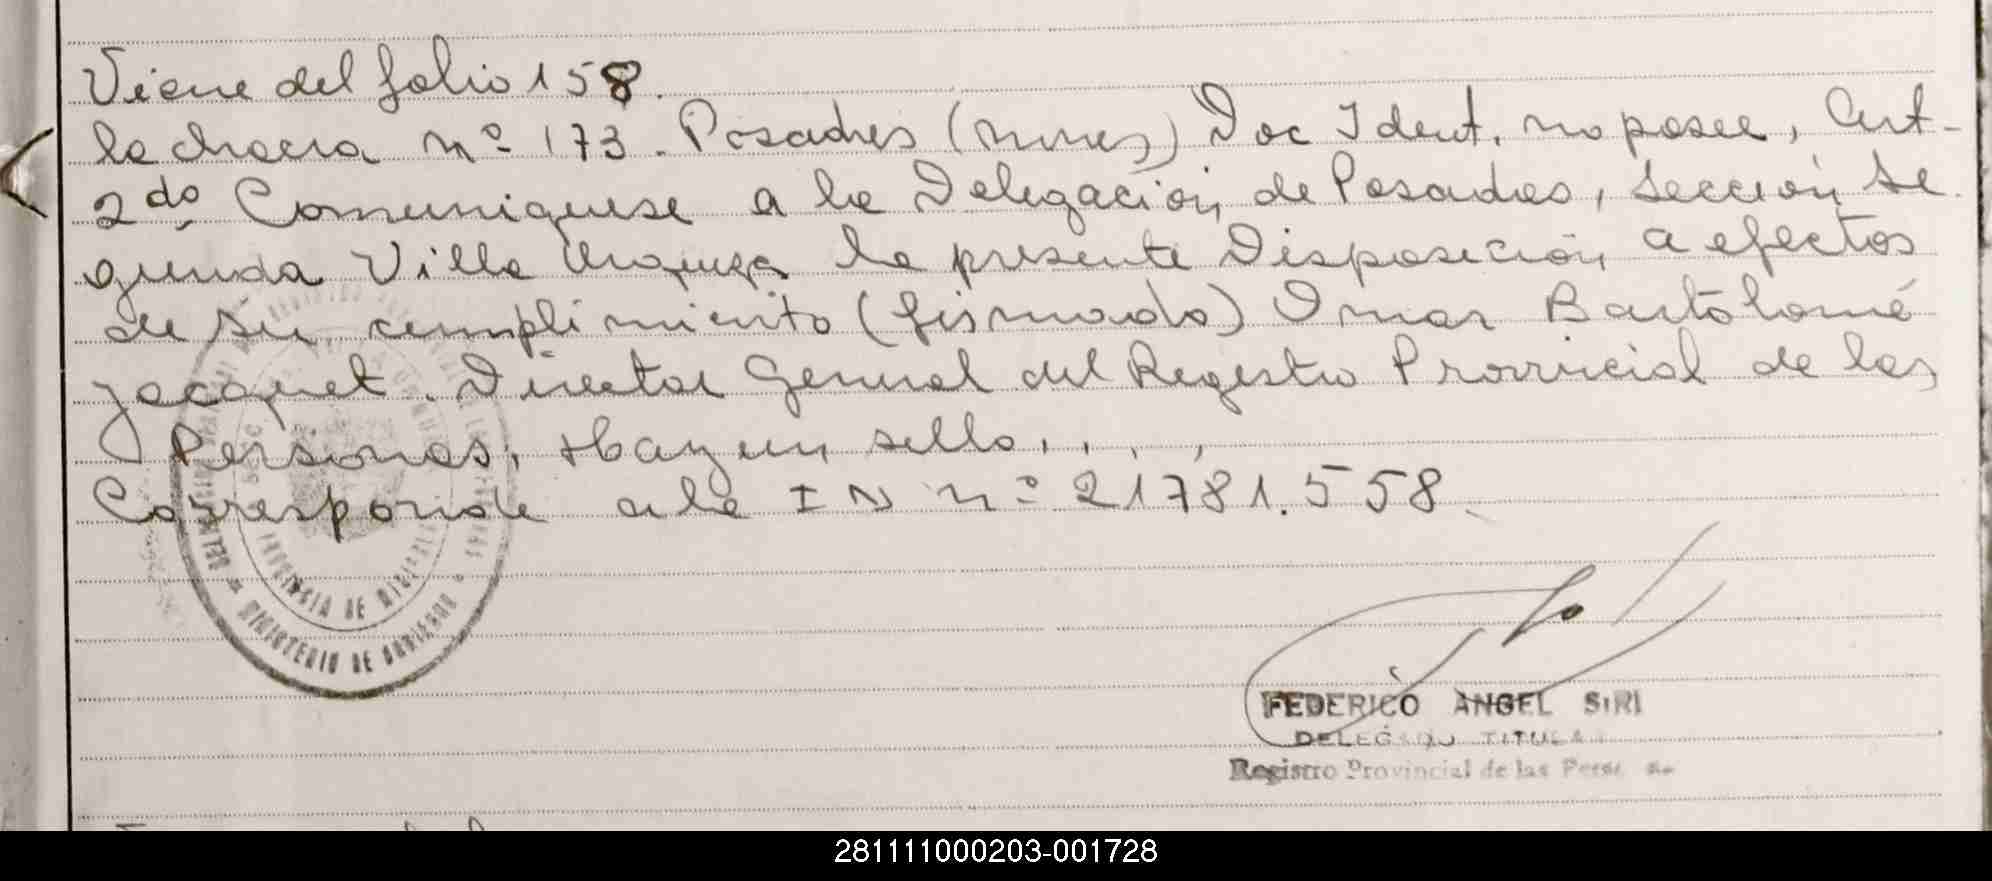 Viene del folio 158.
la chacra nº 173. Posadas (mnes) Doc Ident. no posee, Art-
2do Comuniquese a la Delegación de Posadas, Sección Se
gunda Villa Urquiza la presente Disposición a efectos
de su cumplimiento (firmado) Omar Bartolomé
Jacquet. Director General del Registro Provincial de las
Personas, Hay un sello. . . ,
Corresponde a la I N nº 21781.558.
PROVINCIA DE MISIONES
MINISTERIO DE GOBIERNO
FEDERICO ANGEL SIRI
DELEGADO TITULAR
Registro Provincial de las Pers
281111000203-001728